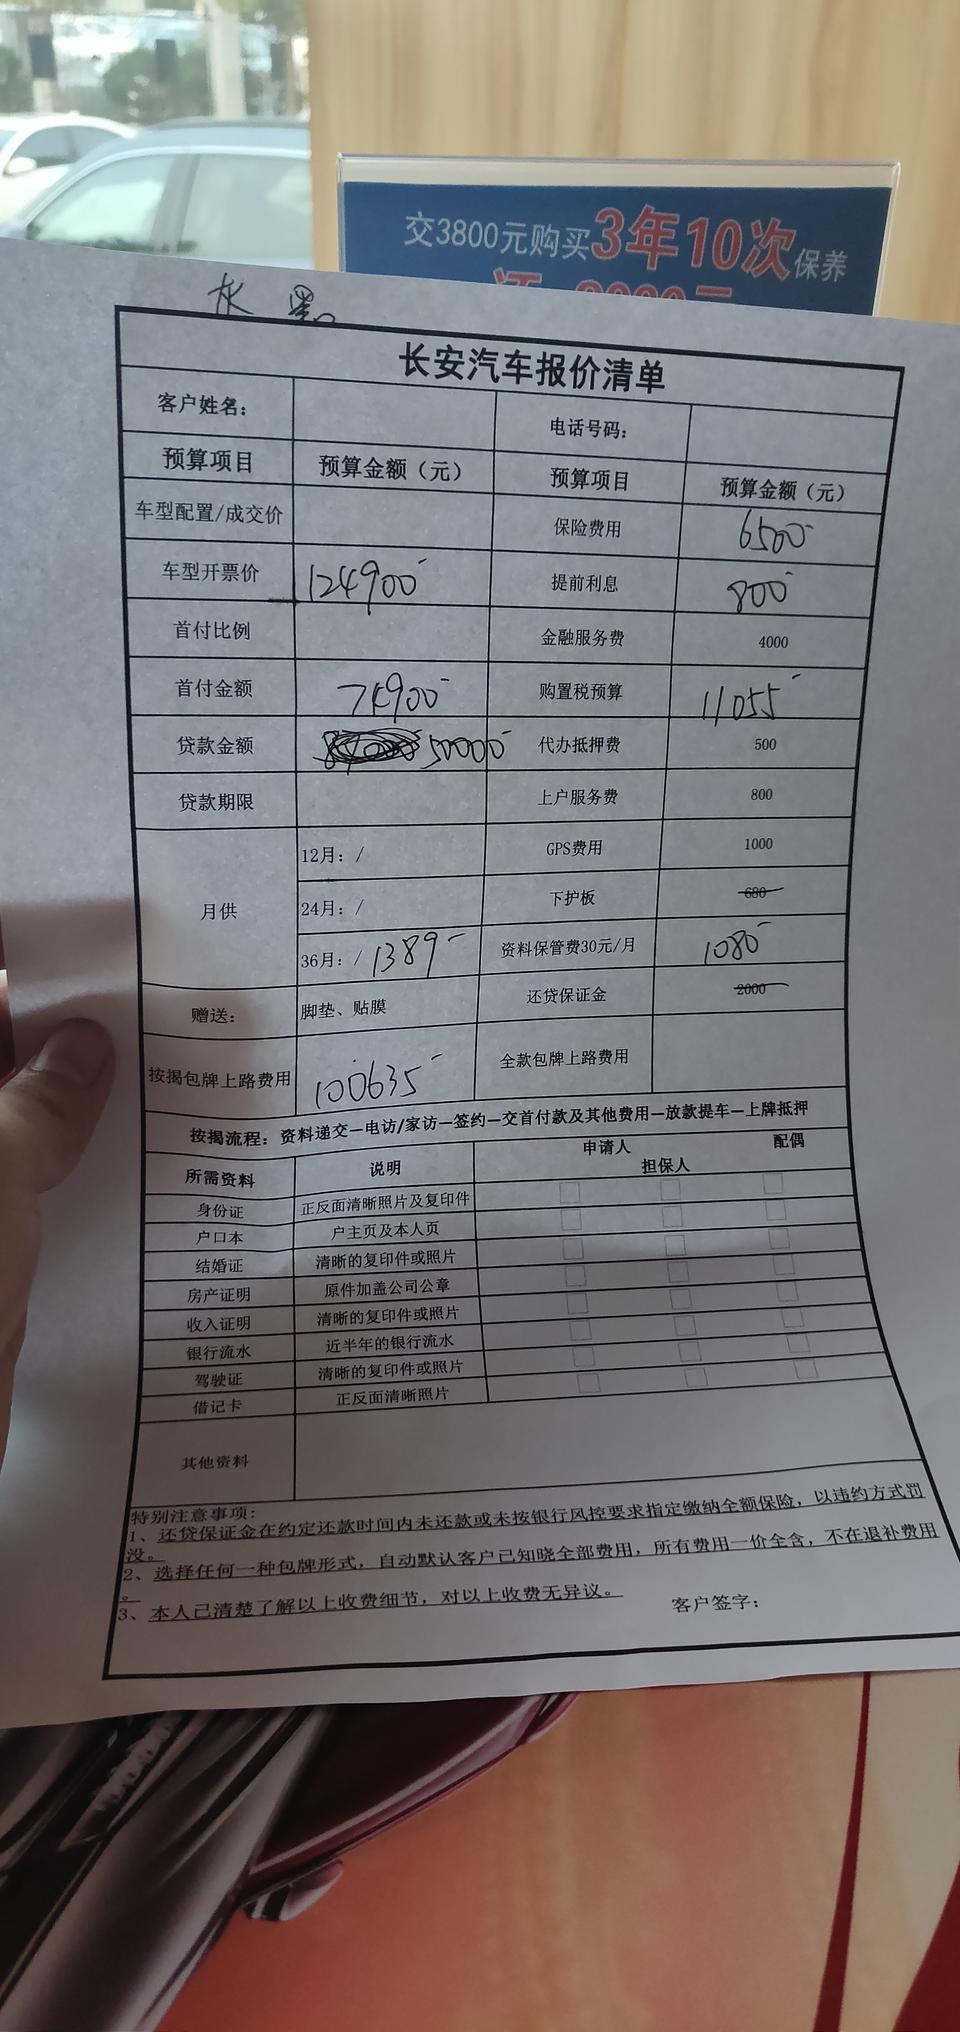 交3800元购买3年10次保养
灰 黑
长安汽车报价清单
客户姓名： 电话号码：
预算项目 预算金额（元） 预算项目 预算金额（元）
车型配置/成交价 保险费用 6500
车型开票价 124900 提前利息 800
首付比例 金融服务费 4000
首付金额 74900 购置税预算 11055
贷款金额 50000 代办抵押费 500
贷款期限 上户服务费 800
月供 12月：/ GPS费用 1000
24月：/ 下护板 680
36月：/ 1389 资料保管费30元/月 1080
赠送： 脚垫、贴膜 还贷保证金 2000
按揭包牌上路费用 100635 全款包牌上路费用
按揭流程：资料递交—电访/家访—签约—交首付款及其他费用—放款提车—上牌抵押
所需资料 说明 申请人 担保人 配偶
身份证 正反面清晰照片及复印件
户口本 户主页及本人页
结婚证 清晰的复印件或照片
房产证明 原件加盖公司公章
收入证明 清晰的复印件或照片
银行流水 近半年的银行流水
驾驶证 清晰的复印件或照片
借记卡 正反面清晰照片
其他资料
特别注意事项：
1、还贷保证金在约定还款时间内未还款或未按银行风控要求指定缴纳全额保险，以违约方式罚
没。
2、选择任何一种包牌形式，自动默认客户已知晓全部费用，所有费用一价全含，不在退补费用
。
3、本人已清楚了解以上收费细节，对以上收费无异议。 客户签字：